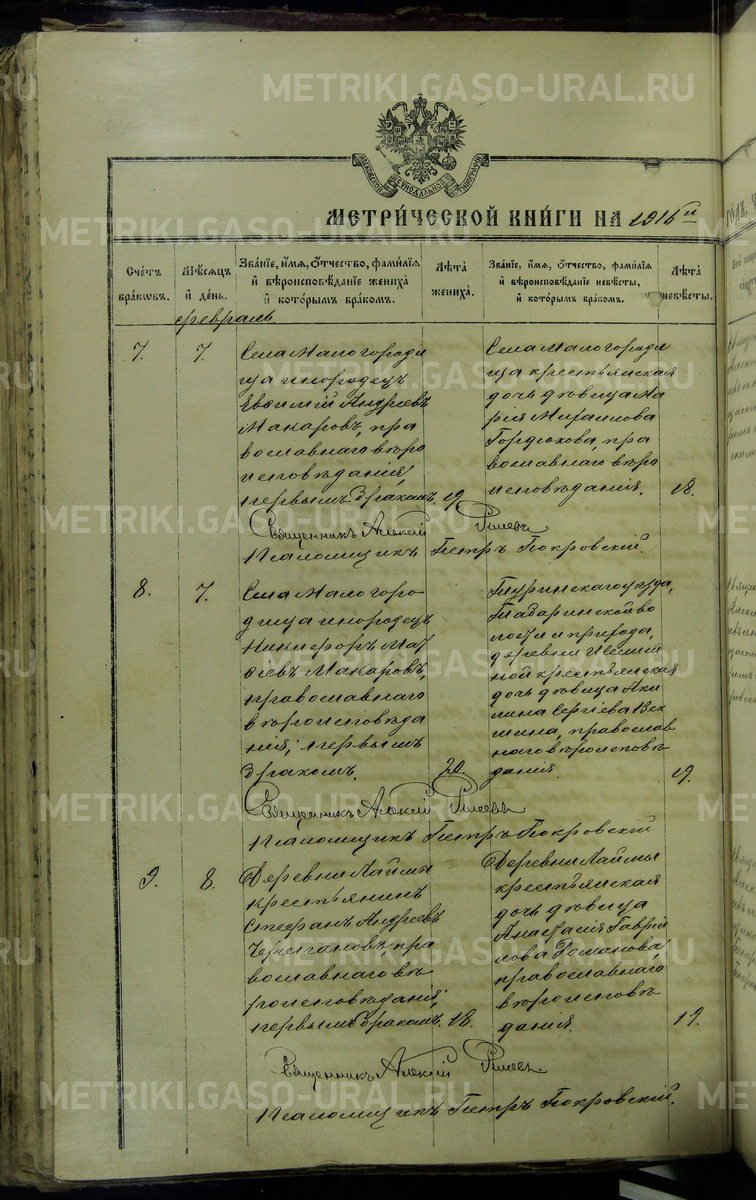 METRIKI.GASO-URAL.RU
МОСКОВСКОЙ СѴНОДАЛЬНОЙ ТИПОГРАФІИ
МЕТРИ́ЧЕСКОЙ КНИ́ГИ НА 1916й
Сче́тъ бра́кѡвъ.
Мѣ́сяцъ и́ де́нь.
Зва́нїе, и́мя, ѻ́тчество, фами́лїя и́ вѣроисповѣ́данїе жениха̀ и́ кото́рымъ бра́комъ.
Лѣ́та жениха̀.
Зва́нїе, и́мя, ѻ́тчество, фами́лїя и́ вѣроисповѣ́данїе невѣ́сты, и́ кото́рымъ бра́комъ.
Лѣ́та невѣ́сты.
февраль
7.
7.
Села Малогороди
ща инородецъ
Евѳимій Андреевъ
Макаровъ, пра
вославнаго вѣро
исповѣданія,
первымъ бракомъ
19
Села Малогороди
ща крестьянская
дочь дѣвица Ма
рія Михаилова
Гордюхова, пра
вославнаго вѣро
исповѣданія.
18.
Священникъ Алексій
Псаломщикъ Петръ Покровскій.
8.
7.
Села Малогоро
дища инородецъ
Никифоръ Мат
ѳіевъ Макаровъ,
православнаго
вѣроисповѣда
нія, первымъ
бракомъ.
20.
Туринскаго уѣзда,
Табаринской во
лости и прихода,
деревни
крестьянская
дочь дѣвица Аки
лина Сергіева Век
шина, православ
наго вѣроисповѣ
данія.
19.
Священникъ Алексій
Псаломщикъ Петръ Покровскій
9.
8.
Деревни Лаймы
крестьянинъ
Стефанъ Андреевъ
Черепановъ, пра
вославнаго вѣ
роисповѣданія,
первымъ бракомъ.
18.
Деревни Лаймы
крестьянская
дочь дѣвица
Анастасія Гаврі
лова Доманова,
православнаго
вѣроисповѣ
данія.
19.
Священникъ Алексій
Псаломщикъ Петръ Покровскій.